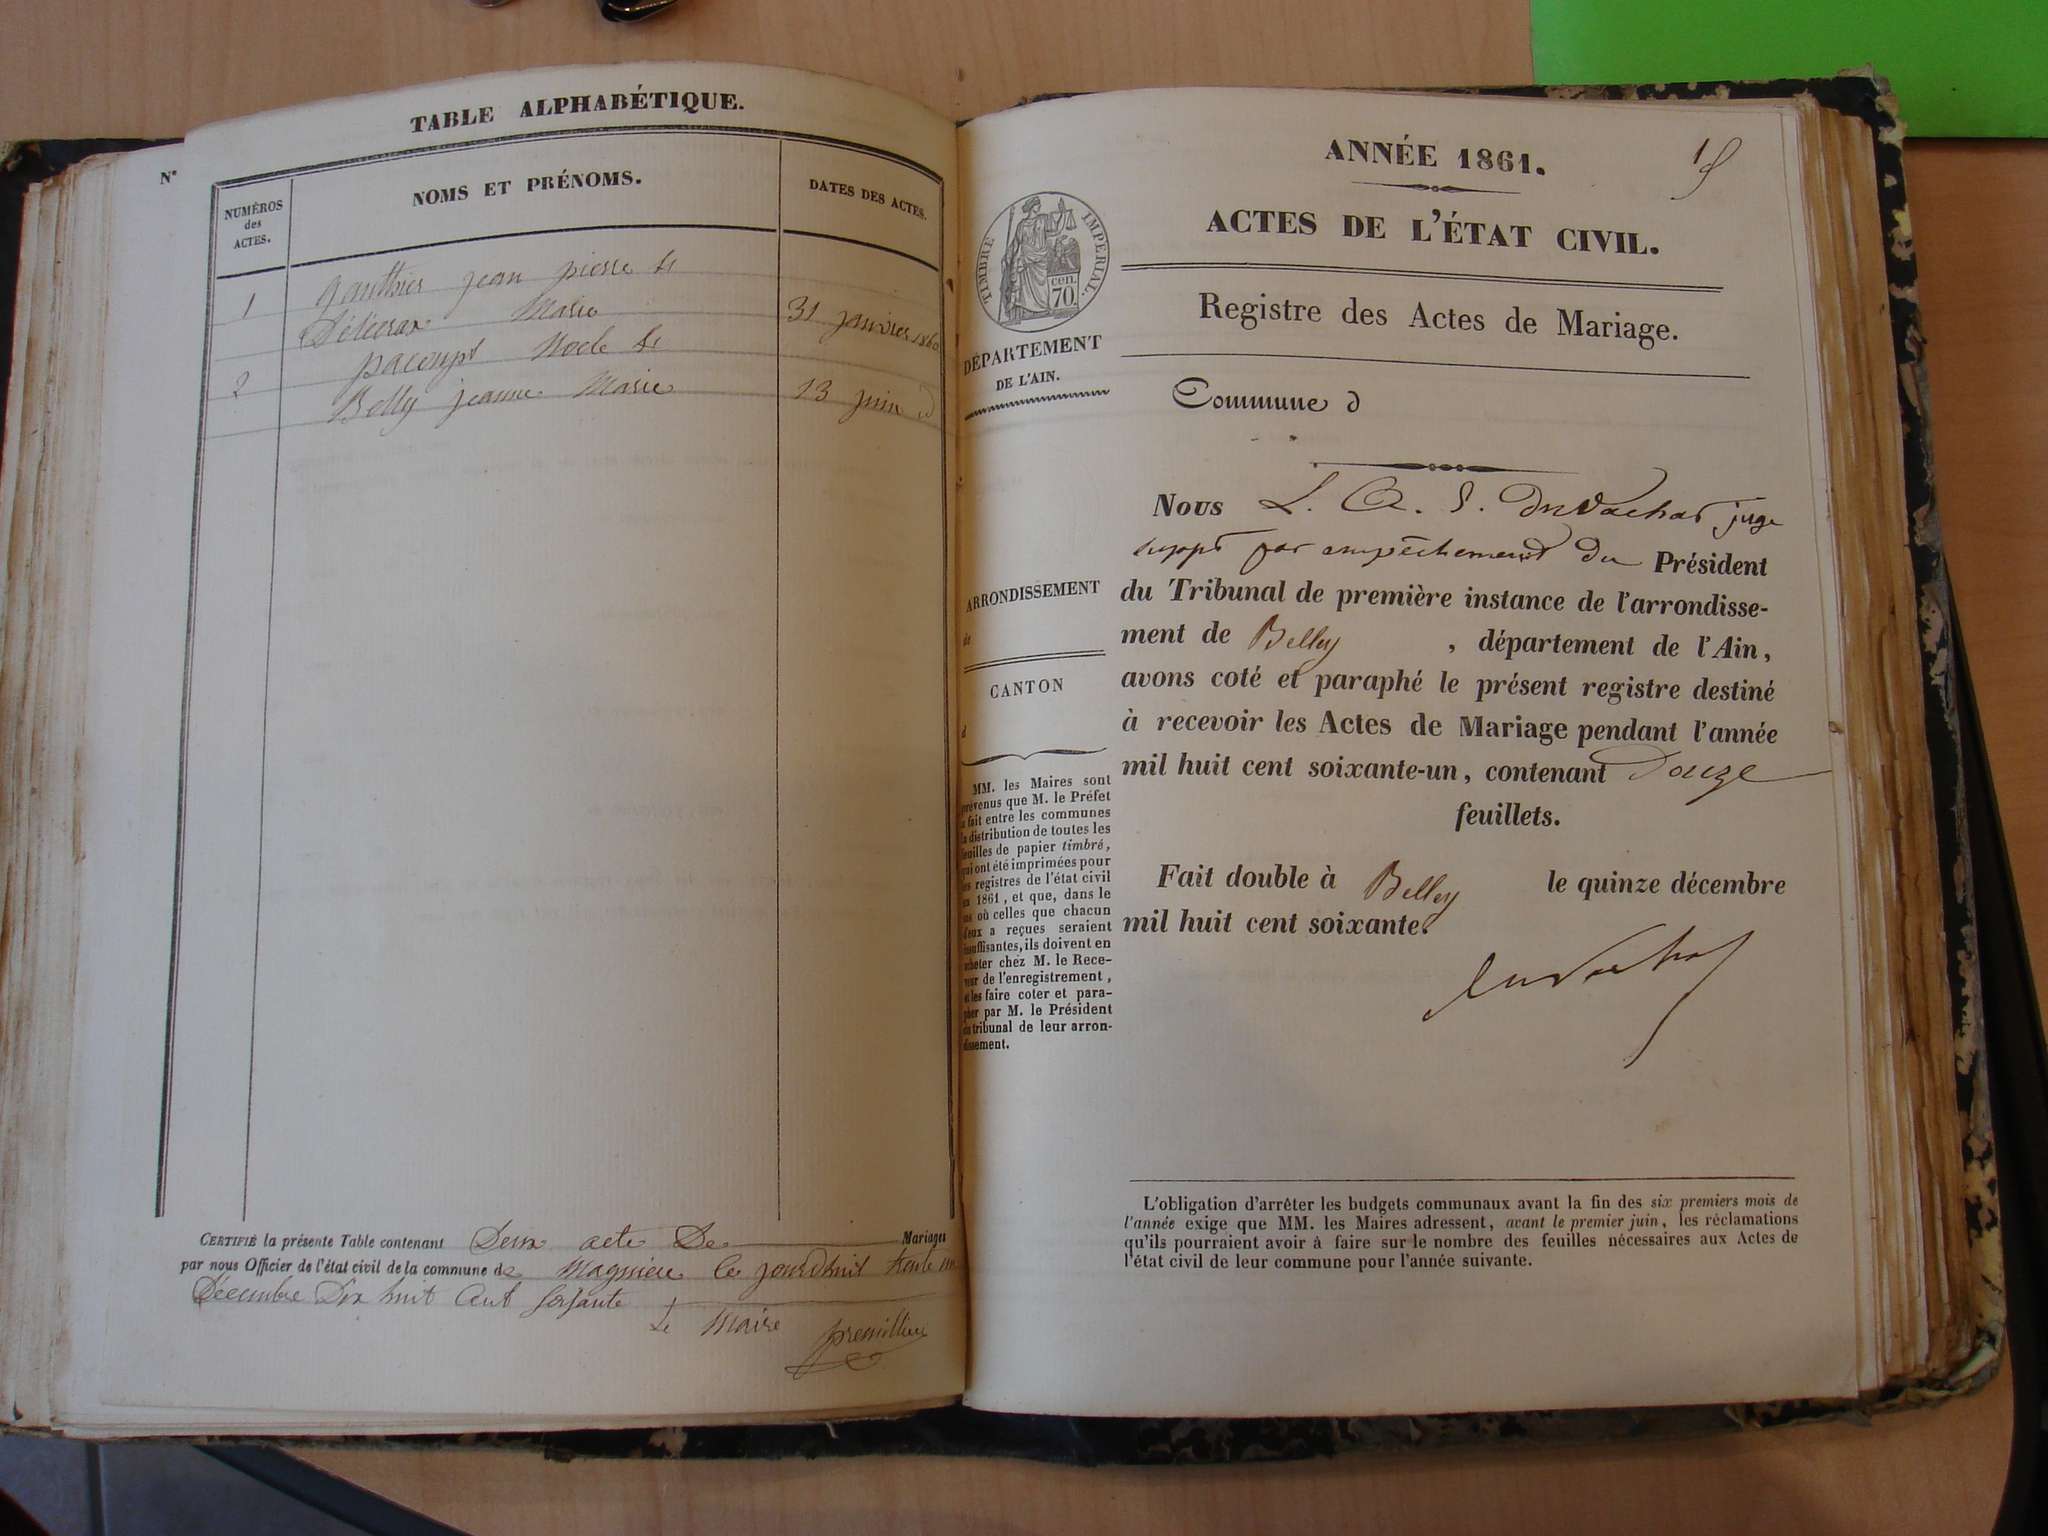 TABLE ALPHABÉTIQUE.
N°
NUMÉROS
des
ACTES.
NOMS ET PRÉNOMS.
DATES DES ACTES.
gauthier jean pierre &
1
Marie
31 janvier 1860
2
Belly jeanne Marie
13 juin id
CERTIFIÉ la présente Table contenant Deux acte De Mariages
par nous Officier de l'état civil de la commune de Magnieu le jourdhuit trente un
Décembre Dix huit Cent soixante
Le Maire
premillieu
ANNÉE 1861.
1
ACTES DE L'ÉTAT CIVIL.
TIMBRE IMPERIAL.
70. cen.
Registre des Actes de Mariage.
DÉPARTEMENT
DE L'AIN.
Commune d
Nous L. A. S. Duvachat juge
suppt par empêchement du Président
du Tribunal de première instance de l'arrondisse-
ment de Belley , département de l'Ain,
avons coté et paraphé le présent registre destiné
à recevoir les Actes de Mariage pendant l'année
mil huit cent soixante-un, contenant Douze
feuillets.
Fait double à Belley le quinze décembre
mil huit cent soixante.
duvachat
ARRONDISSEMENT
de
CANTON
d
MM. les Maires sont
prévenus que M. le Préfet
a fait entre les communes
la distribution de toutes les
feuilles de papier timbré,
qui ont été imprimées pour
les registres de l'état civil
en 1861, et que, dans le
cas où celles que chacun
d'eux a reçues seraient
insuffisantes, ils doivent en
acheter chez M. le Rece-
veur de l'enregistrement,
et les faire coter et para-
pher par M. le Président
du tribunal de leur arron-
dissement.
L'obligation d'arrêter les budgets communaux avant la fin des six premiers mois de
l'année exige que MM. les Maires adressent, avant le premier juin, les réclamations
qu'ils pourraient avoir à faire sur le nombre des feuilles nécessaires aux Actes de
l'état civil de leur commune pour l'année suivante.